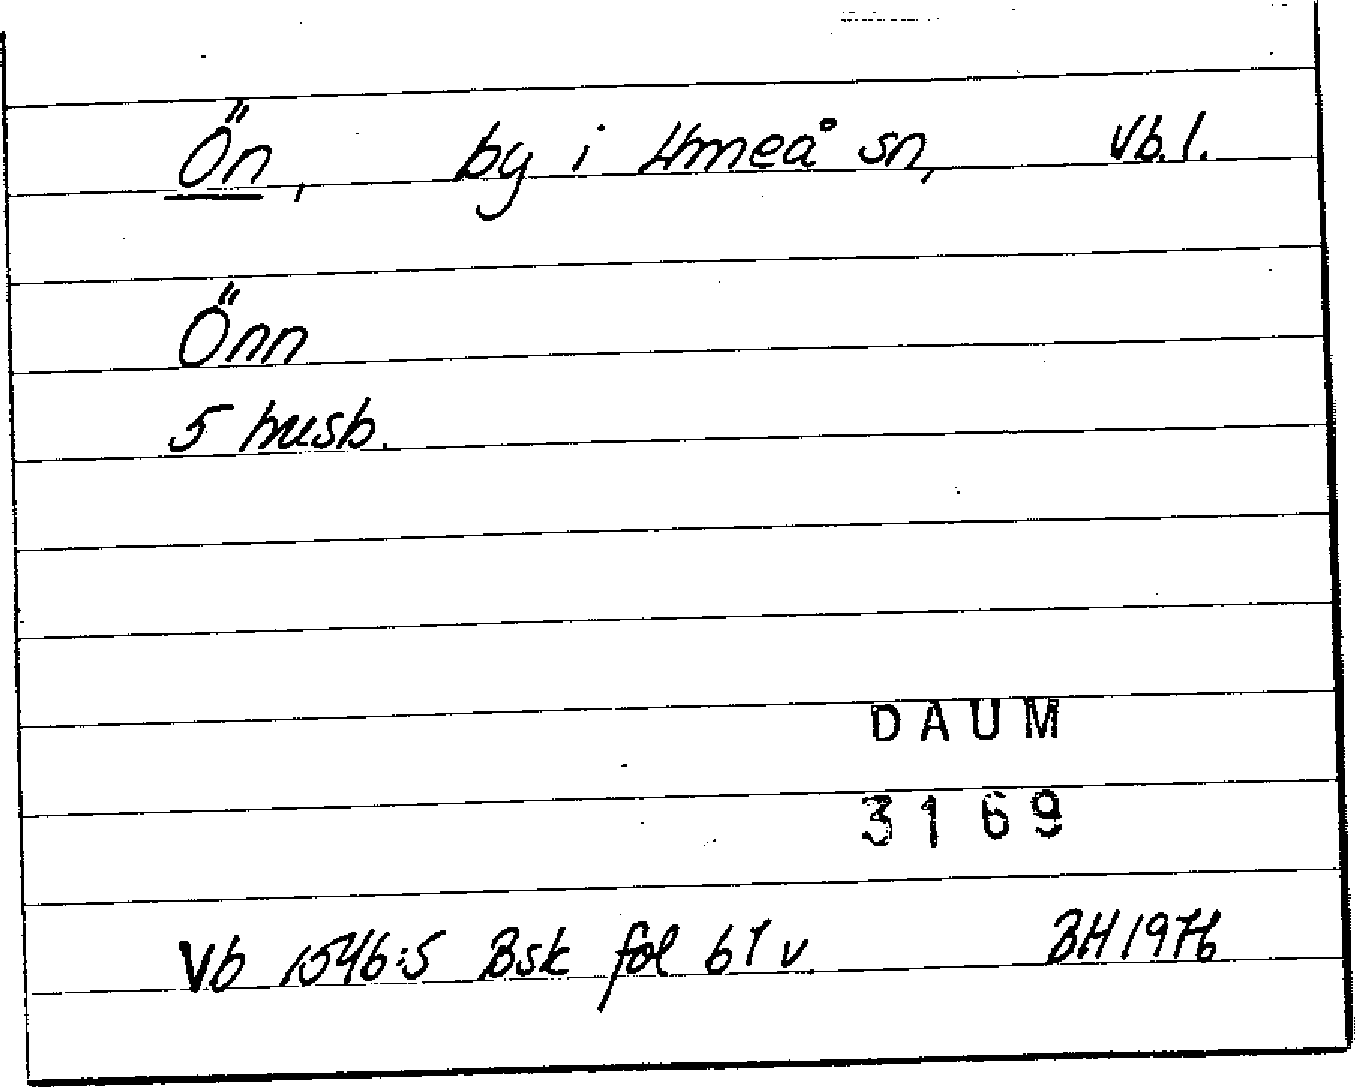 Ön, by i Umeå sn, Vb. l.
Önn
5 husb.
DAUM
3169
Vb 1546:5 Bsk fol 61 v BH 1976